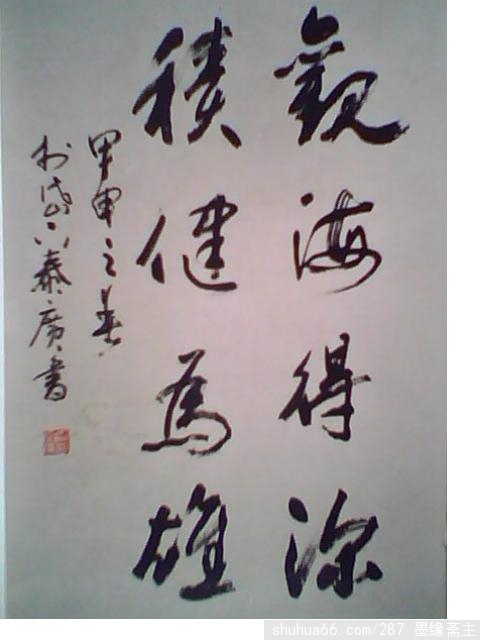 觀海得深
積健為雄
甲申之春
於岱下泰廣書
shuhua66.com/287 墨缘斋主